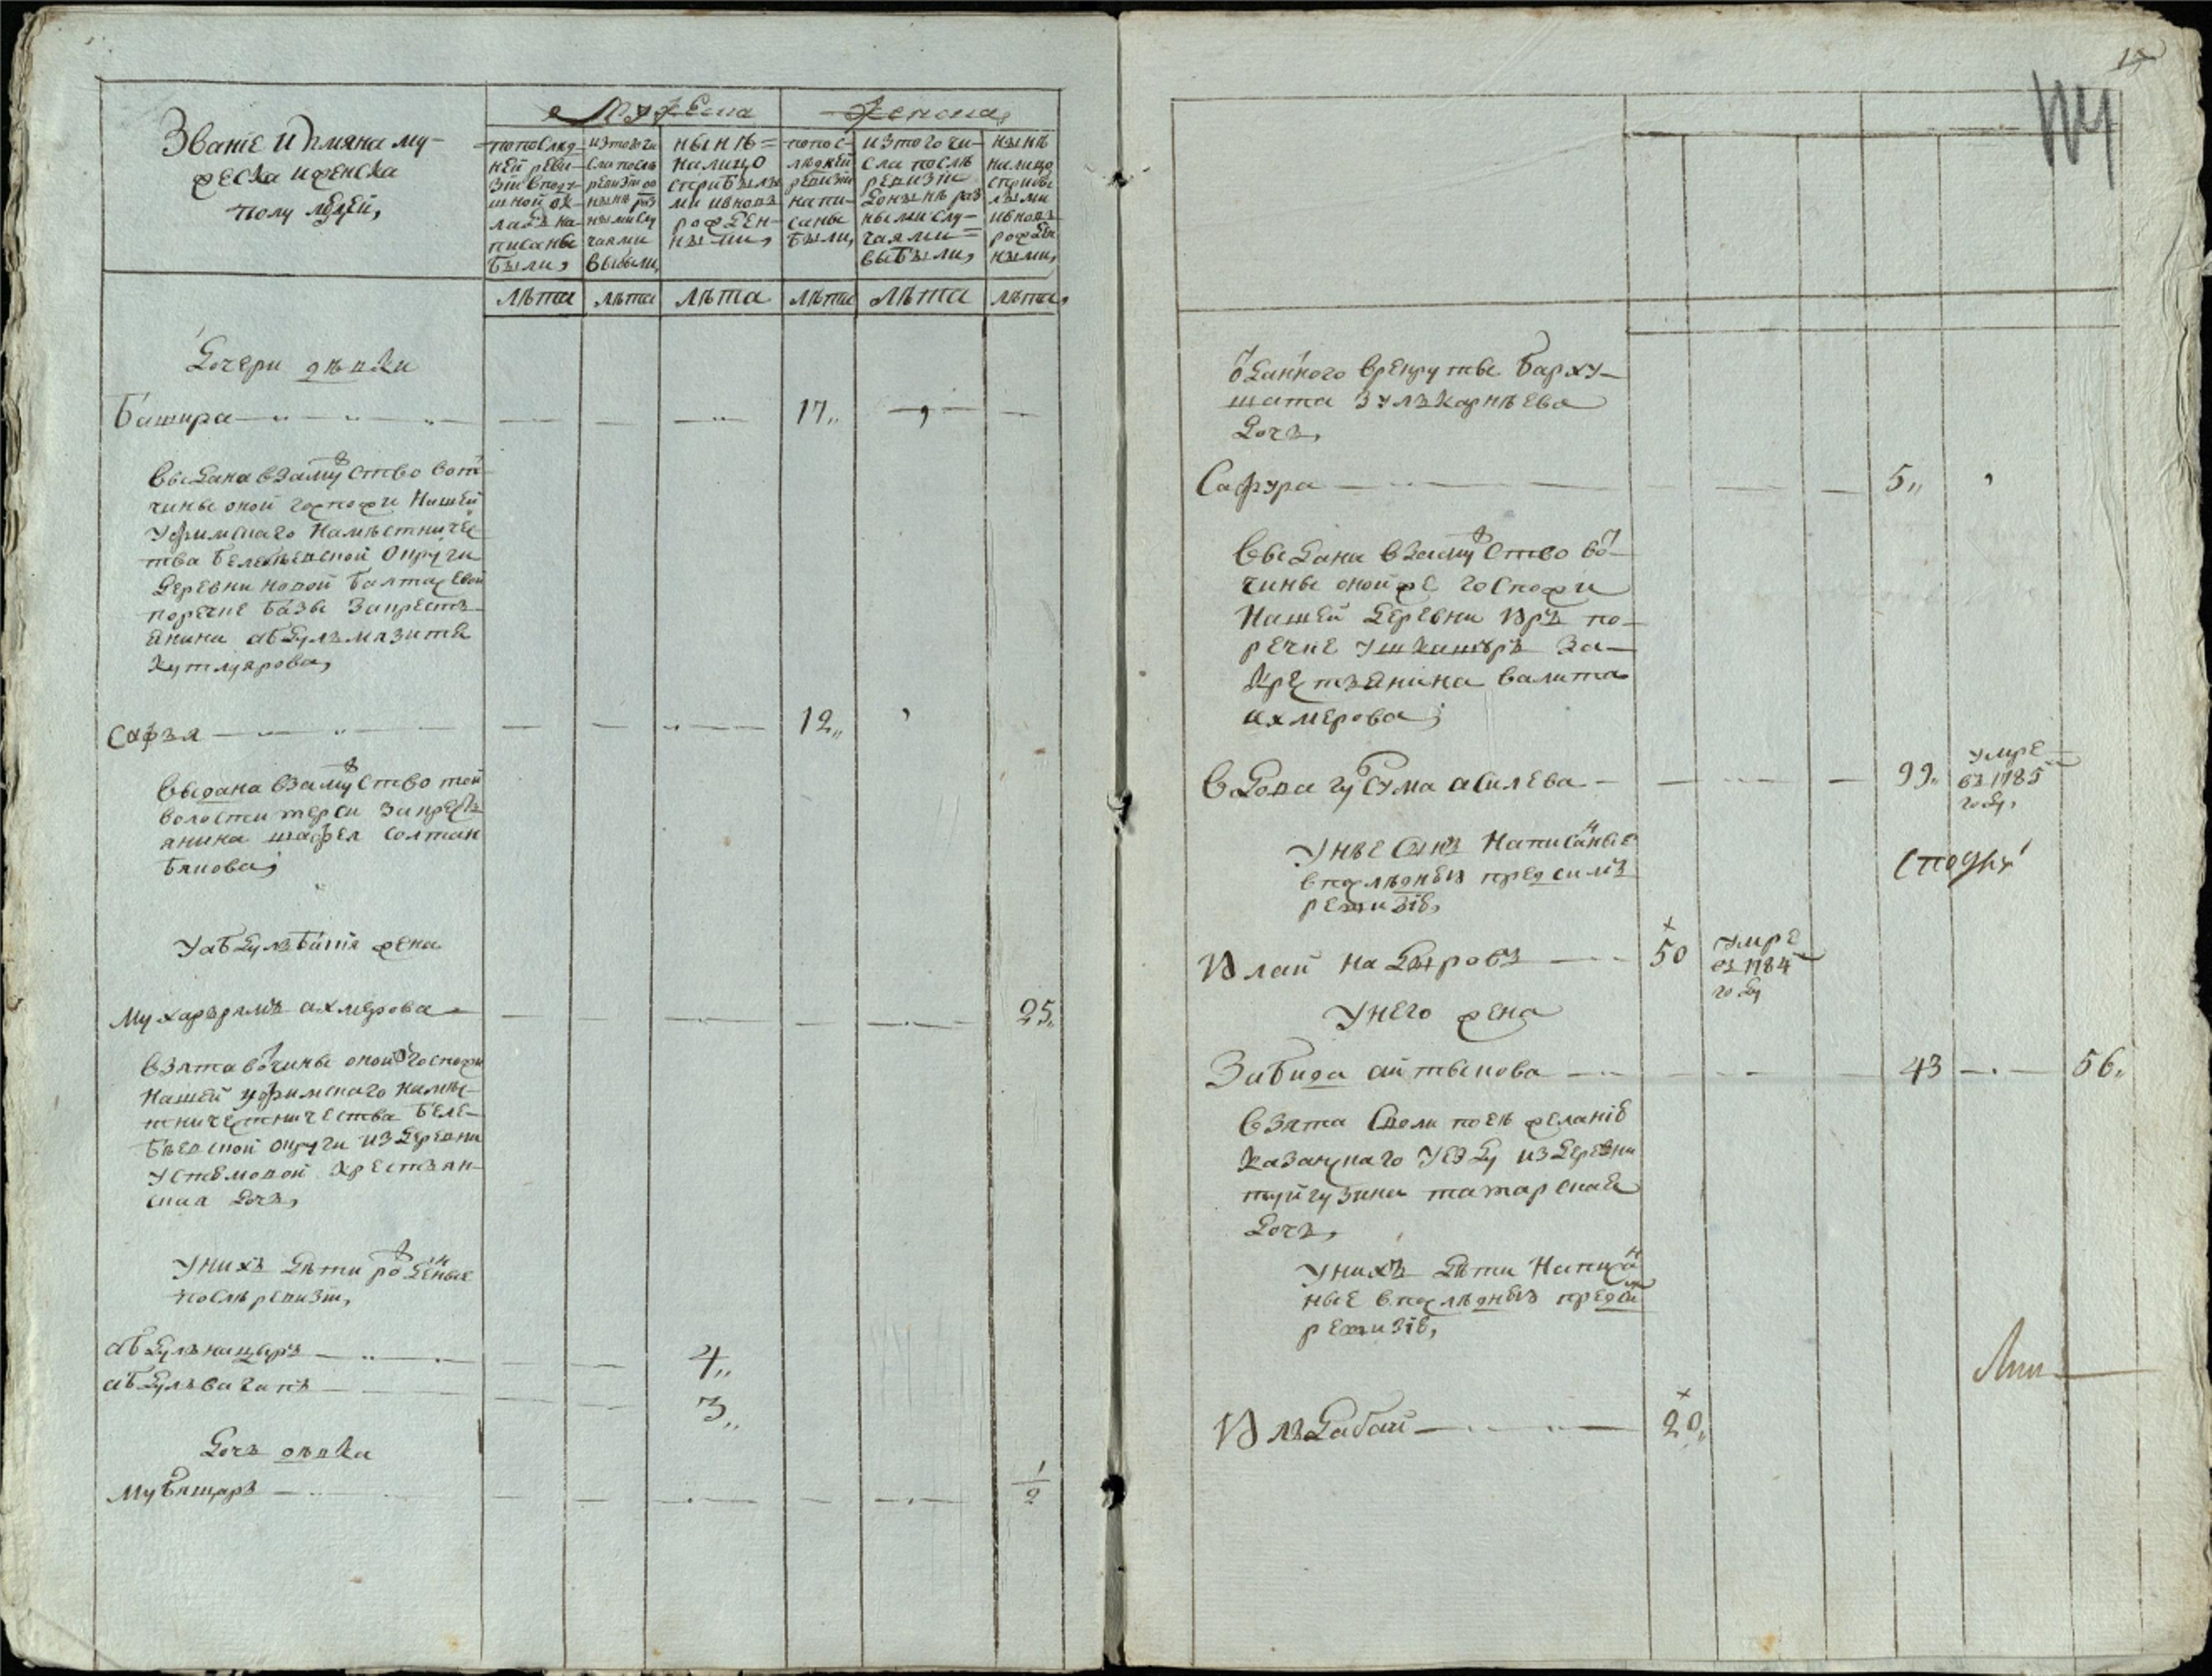 Званіе И Имяна му-
жеска иженска
полу людей,
Мужеска
Женска,
попослед-
ней реви-
зіи вподу-
шной ок-
ладъ на-
писаны
были,
изтого чи
сла послѣ
ревизіи до
нынѣ раз
ными слу
чаями
выбыли,
нынѣ=
налицо
сприбылы
ми ивновь
рожден-
ными,
попос-
лѣдней
ревизіи
напи-
саны
были,
изтого чи-
сла послѣ
ревизіи
донынѣ раз
ными слу-
чаями=
выбыли,
нынѣ
налицо
сприбы
лыми
ивновь
рожден
ными,
лѣта лѣта лѣта лѣта лѣта лѣта,
Дочери дѣвки
Башира 17,,
Выдана взамужство вот
чины оной госпожи Нашей
Уфимскаго Намѣстничес
тва Белебѣевской Округи
Деревни новой Балтачевой
поречке Базы закресть
янина абдулъмазита
Кутлуярова,
Сафья 12,,
Выдана взамужство той
волости терси закресть
янина шафея солтан
бякова;
Уабдулъ жена
Мухарърямъ ахмерова 25,,
Взята вотчины оной госпожи
Нашей уфимскаго намѣс-
тничестничества Беле-
бѣевской округи изДеревни
Устюмовой Крестьян-
ская дочь,
Унихъ Дѣти рожденые
послѣ ревизіи,
абдулънацыръ 4,,
абдулъвагапъ 3,,
Дочь дѣвка
Мубяшаръ 1/2
15
отданного врекрутвы Барху-
шата зулъкарнѣева
Дочь,
Сафура 5,,
Выдана взамужство вот-
чины оной же госпожи
Нашей деревни Иръ по-
речке Ушкашыръ за-
Крестьянина валита
ахмерова;
Вдова губсума асилева 99,, умре
въ 1785
году,
Унѣе сынъ Написанные
впослѣдней предсимъ
ревизіи,
Илай Надыровъ 50 умре
въ 1784
году
Унего жена
Забида аитыкова 43 56,,
Взята Своли поеѣ желанію
Казанскаго Уезду издеревни
туйгузина татарская
Дочь,
Унихъ Дѣти Написан
ные впослѣдней предсимъ
ревизіи,
Ильдабай 20,,